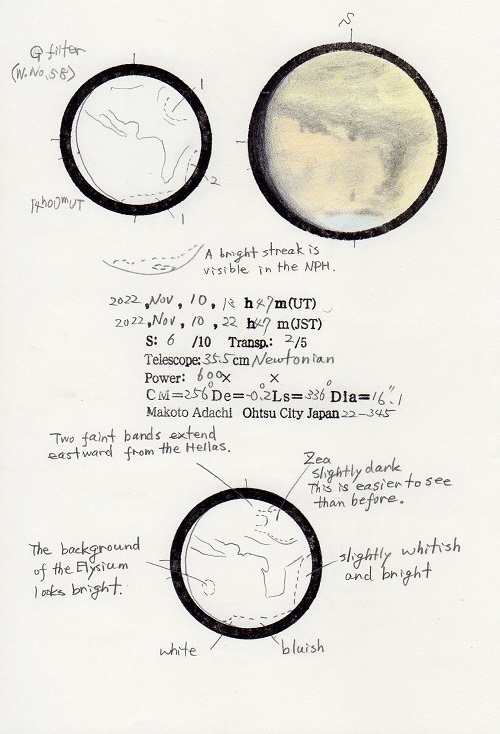 S
G filter
(W.No.58)
1
2
1
14h00mUT
A bright streak is
visible in the NPH.
2022, Nov, 10, 13 h47 m(UT)
2022, Nov, 10, 22 h47 m(JST)
S: 6 /10 Transp.: 2/5
Telescope: 35.5cm Newtonian
Power: 600× ×
CM=256° De=-0.2° Ls=336° Dia=16".1
Makoto Adachi Ohtsu City Japan 22-345
Two faint bands extend
eastward from the Hellas.
Zea
slightly dark
This is easier to see
than before.
The background
of the Elysium
looks bright.
slightly whitish
and bright
white
bluish